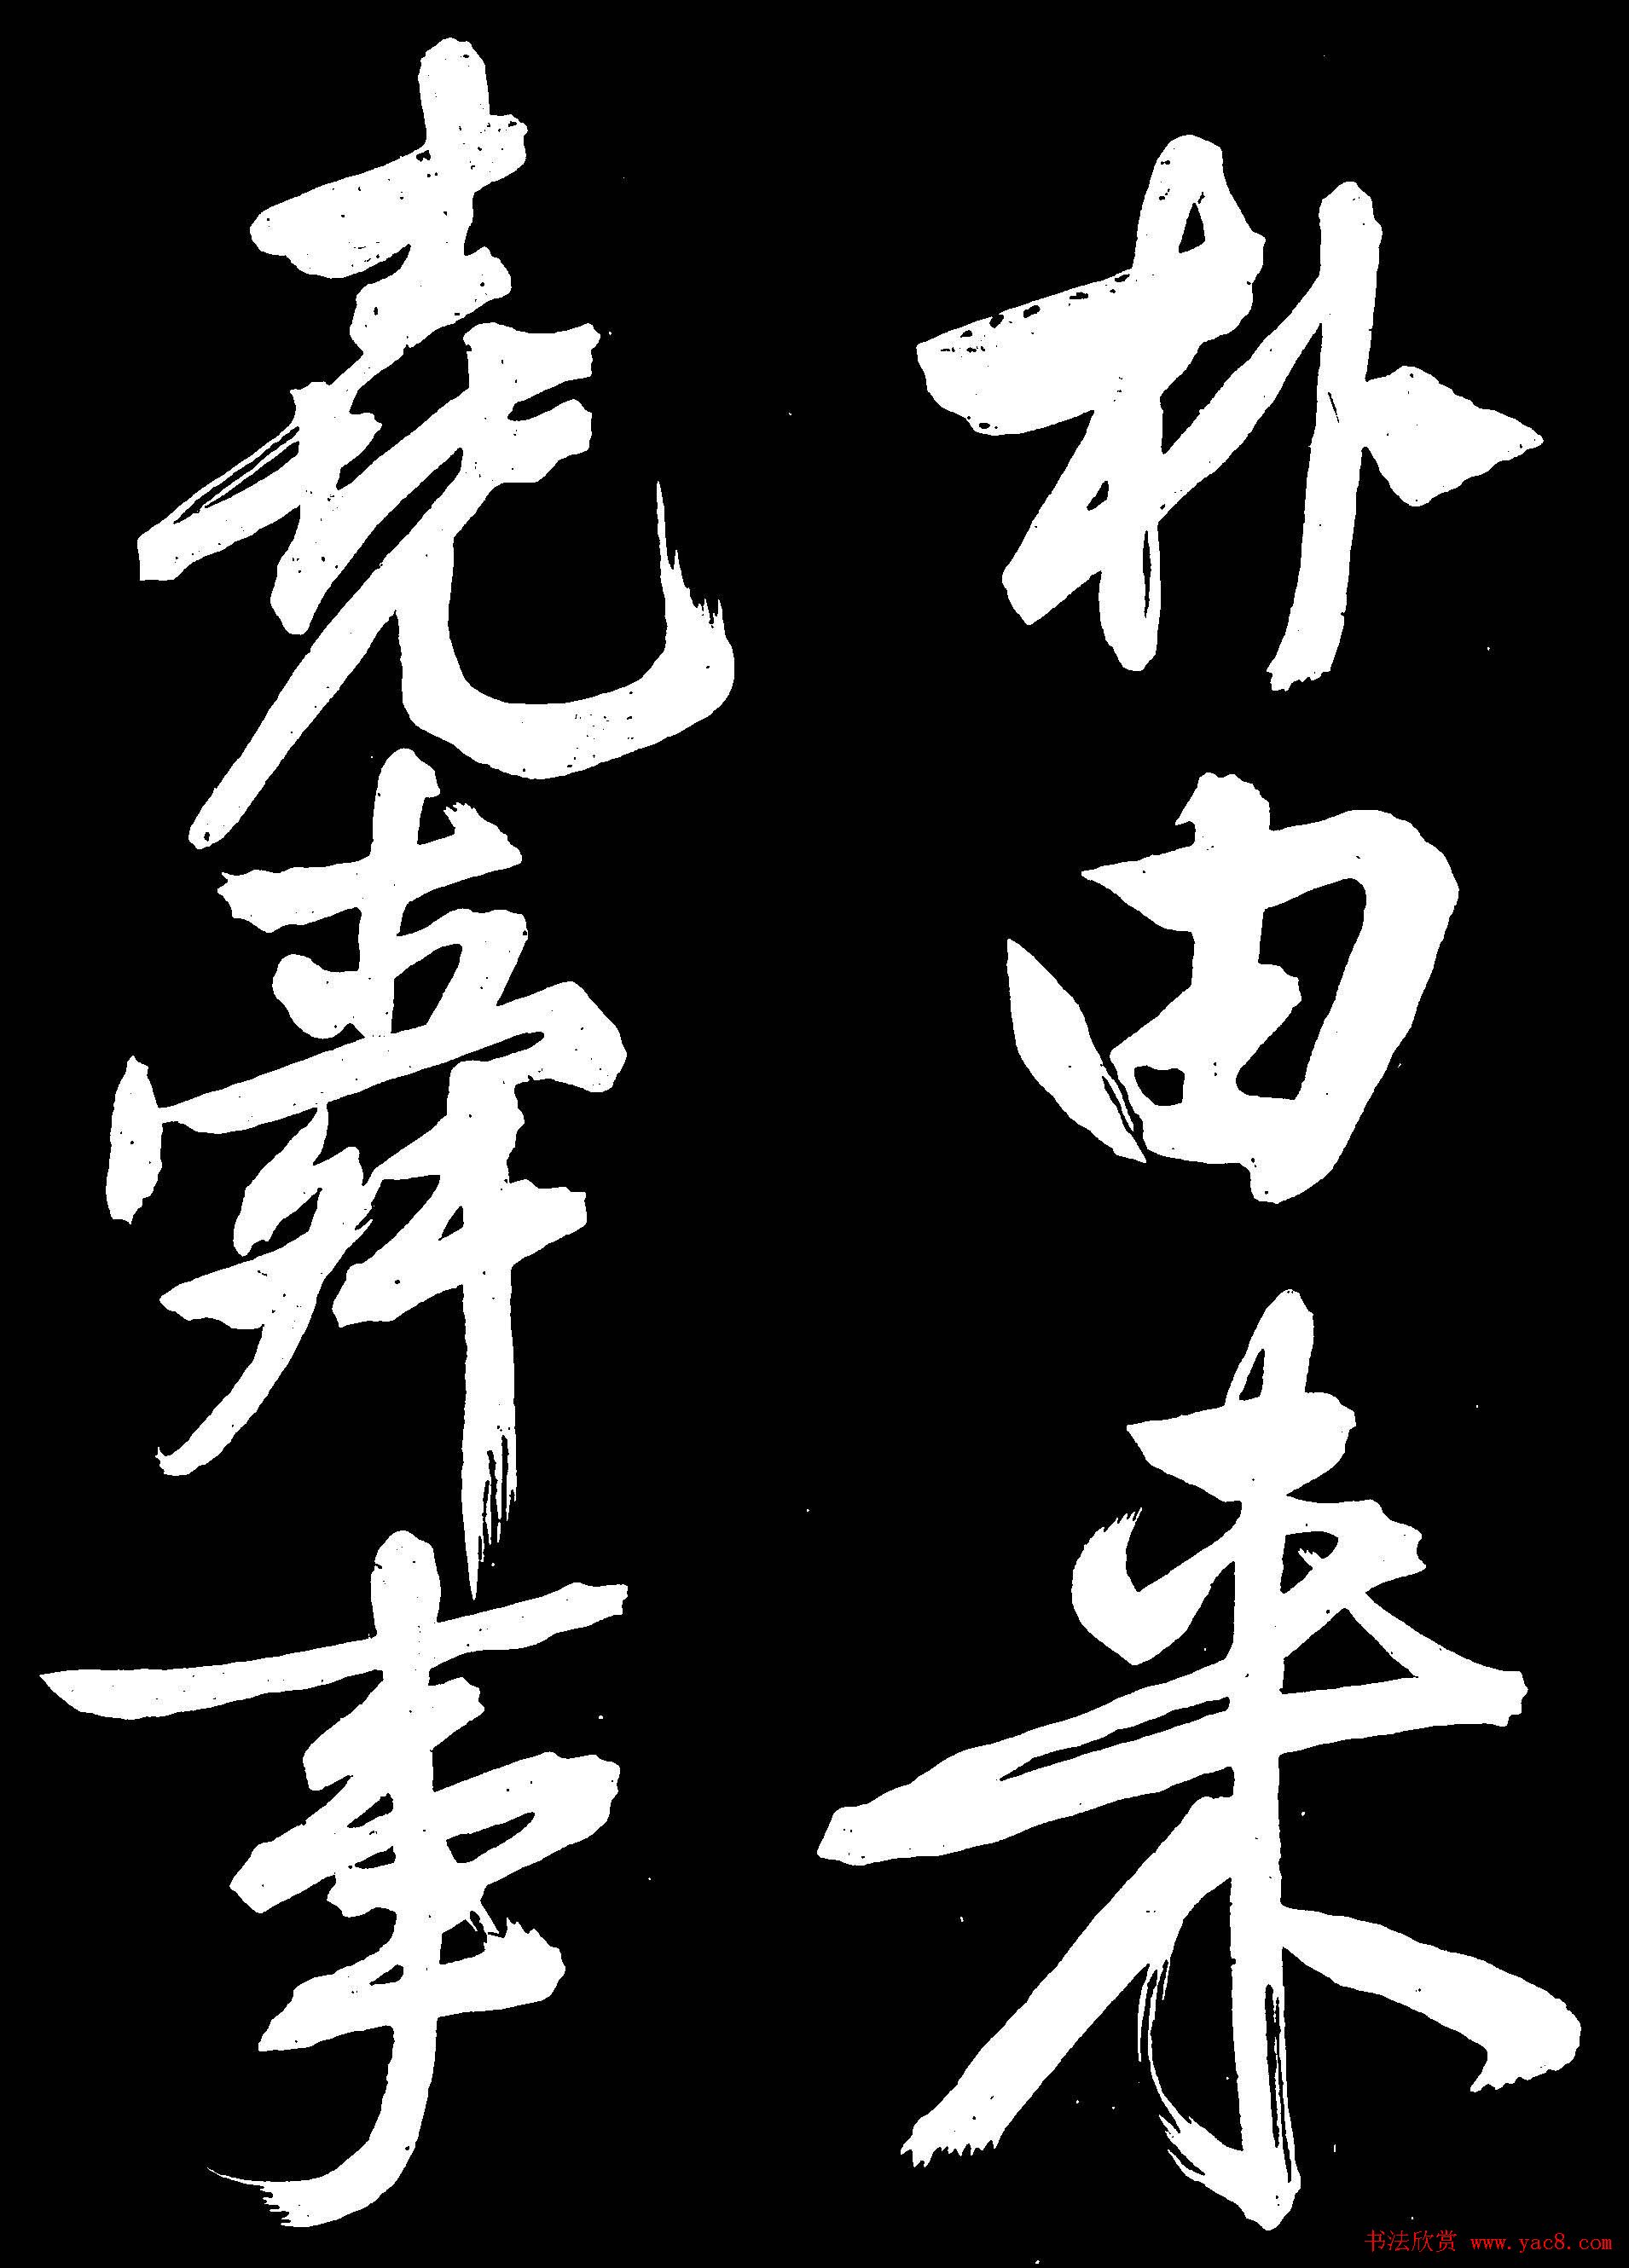 朴由来
尧舜事
书法欣赏 www.yac8.com